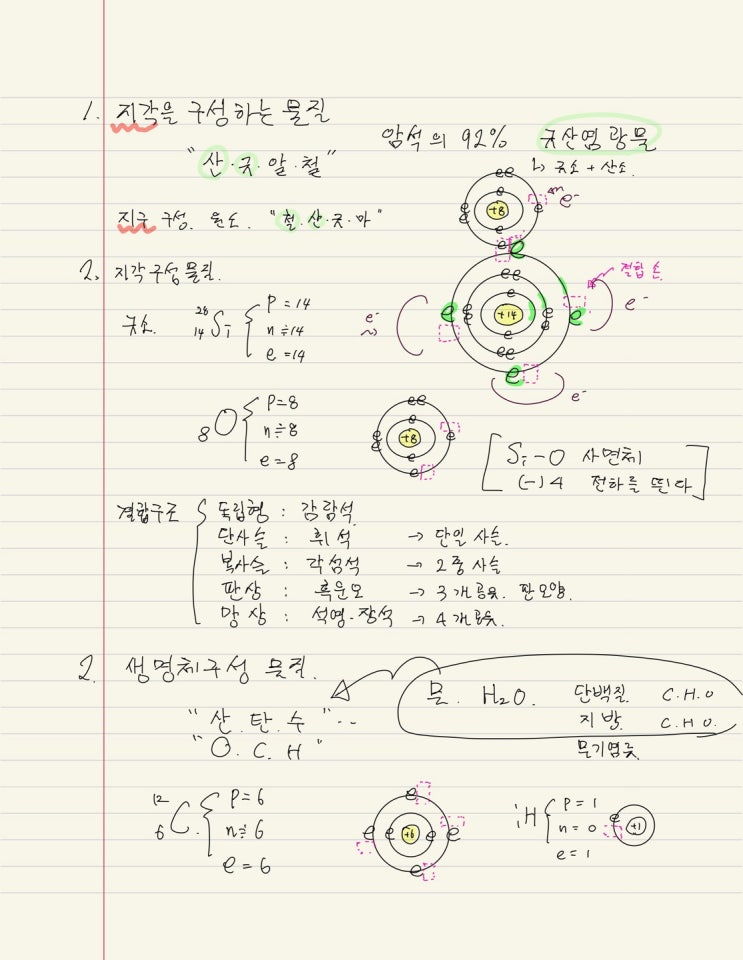 1. 지각을 구성하는 물질
암석의 92% 규산염 광물
"산·규·알·철"
↳ 규소 + 산소.
ee
e e e e⁻
+8
e
e e
지구 구성. 원소. "철·산·규·마"
2. 지각구성물질.
결합 손.
ee
e
e e e +14 e e e
e
ee
e
e⁻
e⁻
e⁻
규소. ²⁸₁₄Si { P = 14
n ≒ 14
e = 14
₈O { P = 8
n ≒ 8
e = 8
ee
e
e e +8 e
e
e
[ Si - O 사면체
(-)4 전하를 띤다 ]
결합구조 { 독립형 : 감람석
단사슬 : 휘석 → 단일 사슬.
복사슬 : 각섬석 → 2중 사슬
판상 : 흑운모 → 3개공유. 판모양.
망상 : 석영·장석 → 4개공유.
2. 생명체구성 물질.
물. H₂O. 단백질. C.H.O
지방. C.H.O.
무기염류.
"산.탄.수"..
"O.C.H"
¹²₆C. { P = 6
n ≒ 6
e = 6
e
e e +6 e e
e
₁H { P = 1
n = 0
e = 1
e +1